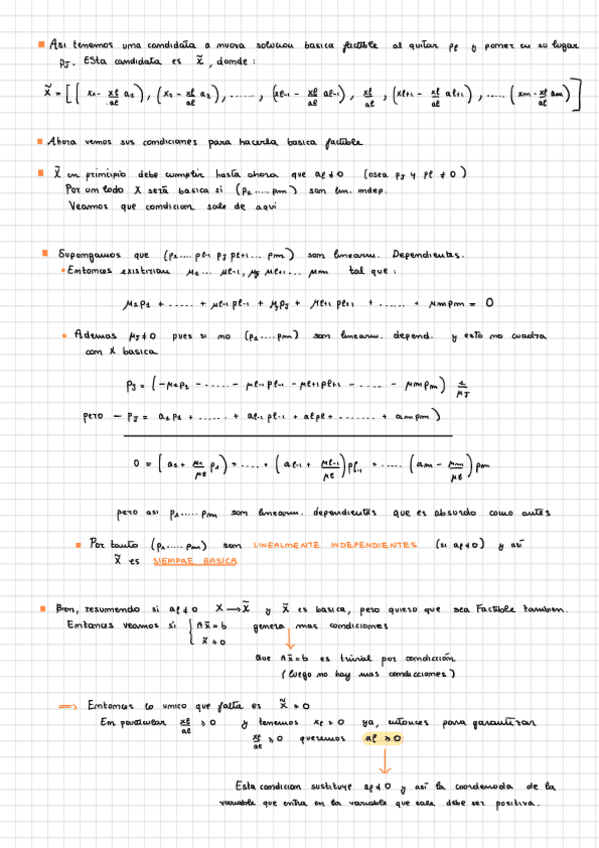 Asi tenemos una candidata a nueva solucion basica factible al quitar pℓ y poner en su lugar
pJ. Esta candidata es x̃, donde:
x̃ = [ ( x1 - xℓ/aℓ a1 ), ( x2 - xℓ/aℓ a2 ), ......, ( xℓ-1 - xℓ/aℓ aℓ-1 ), xℓ/aℓ, ( xℓ+1 - xℓ/aℓ aℓ+1 ), ..... ( xm - xℓ/aℓ am ) ]
Ahora vemos sus condiciones para hacerla basica factible
x̃ en principio debe cumplir hasta ahora que aℓ ≠ 0 (osea pJ y pℓ ≠ 0)
Por un lado X será basica si (p1 ..... pm) son lin. indep.
Veamos que condicion sale de aqui
Supongamos que (p1.... pℓ-1 pJ pℓ+1 ... pm) son linearm. Dependientes.
Entonces existirian μ1 ... μℓ-1, μJ μℓ+1 ... μm tal que:
μ1p1 + ...... + μℓ-1 pℓ-1 + μJpJ + μℓ+1 pℓ+1 + ...... + μmpm = 0
Ademas μJ ≠ 0 pues si no (p1.... pm) son linearm. depend. y esto no cuadra
con X basica
pJ = (-μ1p1 - ...... - μℓ-1 pℓ-1 - μℓ+1pℓ+1 - ..... - μmpm) 1/μJ
pero - pJ = a1p1 + ...... + aℓ-1 pℓ-1 + aℓpℓ + ....... + ampm)
0 = ( a1 + μ1/μℓ p1 ) + .... + ( aℓ-1 + μℓ-1/μℓ ) pℓ-1 + ..... ( am - μm/μℓ ) pm
pero asi p1..... pm son linearm. dependientes que es absurdo como antes
Por tanto (p1..... pm) son LINEALMENTE INDEPENDIENTES (si aℓ ≠ 0) y asi
x̃ es SIEMPRE BASICA
Bien, resumendo si aℓ ≠ 0 X → x̃ y x̃ es basica, pero quiero que sea Factible tambien.
Entonces veamos si { Ax̃ = b genera mas condiciones
x̃ ≥ 0
que Ax̃ = b es trivial por condición
(luego no hay mas condicciones)
⟹ Entonces lo unico que falta es x̃ ≥ 0
En particular xℓ/aℓ ≥ 0 y tenemos xℓ ≥ 0 ya, entonces para garantizar
xℓ/aℓ ≥ 0 queremos aℓ ≥ 0
Esta condicion sustituye aℓ ≠ 0 y asi la coordenada de la
variable que entra en la variable que sale debe ser positiva.